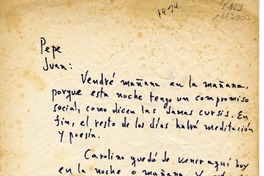 1974
Pepe
Juan:
Vendré mañana en la mañana,
porque esta noche tengo un compromiso
social, como dicen las damas cursis. En
fin, el resto de los días habrá meditación
y poesía.
Carolino quedó de venir aquí hoy
en la noche o mañana